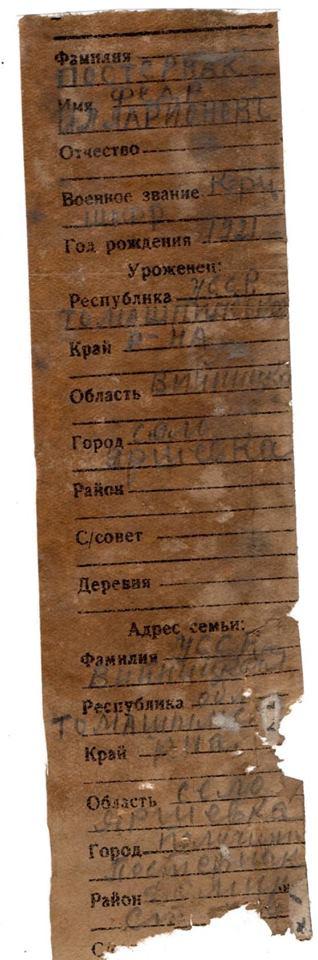 Фамилия
ПОСТЕРНАК
Имя ФЕДР
ИЛЛАРИЕНОВЪ
Отчество
Военное звание
Год рождения 1921
Уроженец:
Республика УССР
ТОМАШПИЛЬСК
Край Р-НА
Область ВИННИЦКО
Город село
ЯРЩЕВКА
Район
С/совет
Деревня
Адрес семьи:
Фамилия УССР
ВИННИЦКОЙ
Республика обл
ТОМАШПИЛЬСК
Край Р НА
Область село
ЯРЩЕВКА
Город
Постернак
Район